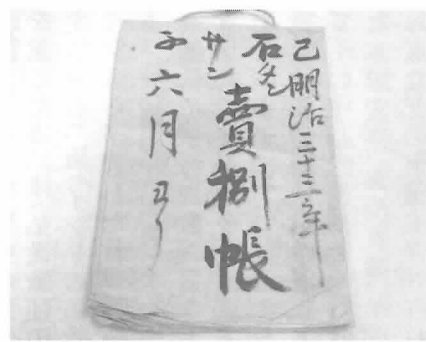 己明治三十二年
石炭
サン
賣捌帳
亥六月ヨリ